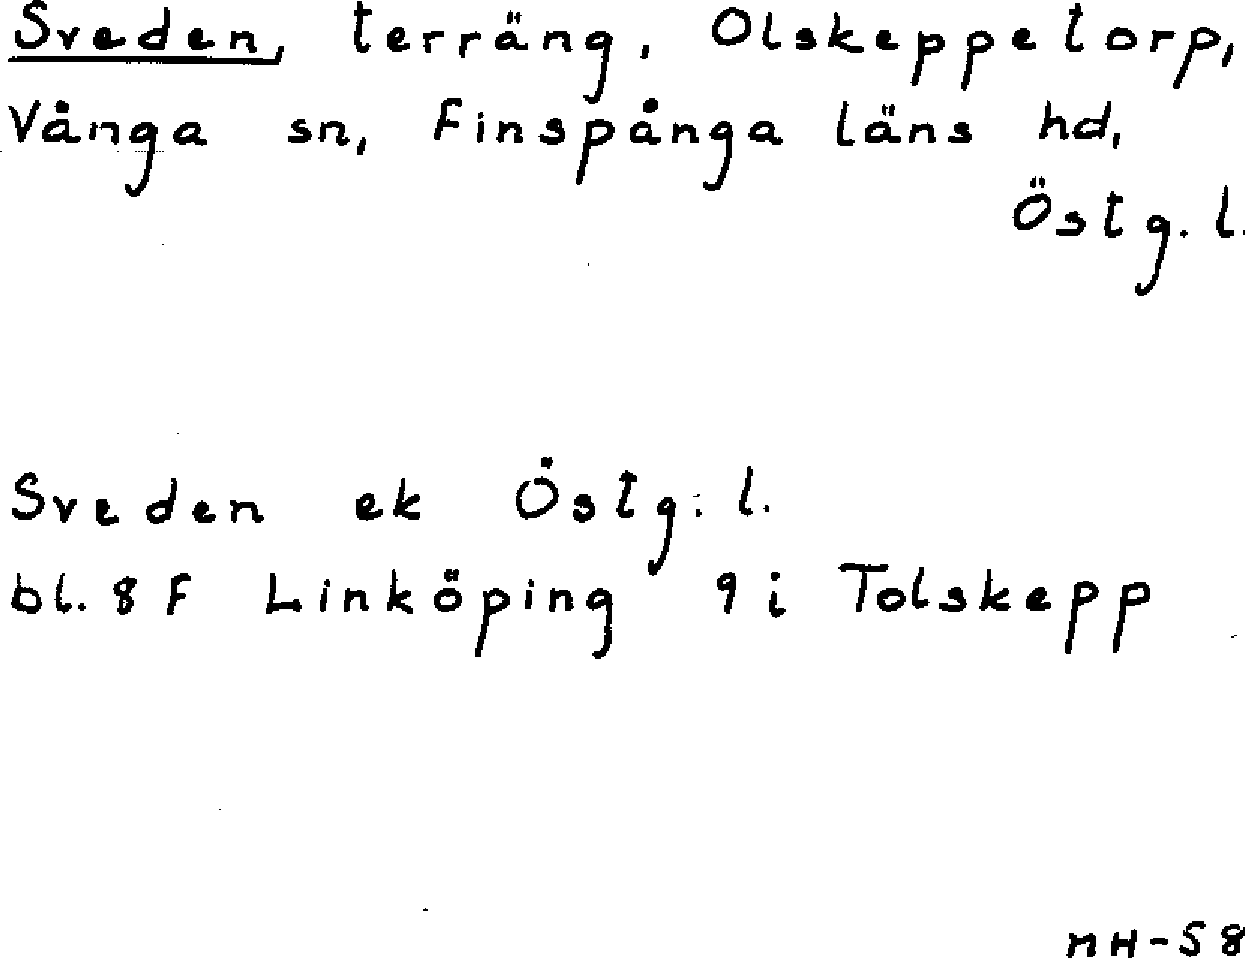 Sveden, terräng, Olskeppetorp,
Vånga sn, Finspånga läns hd,
Östg. l.
Sveden ek Östg. l.
bl. 8 F Linköping 9 i Tolskepp
nH-58